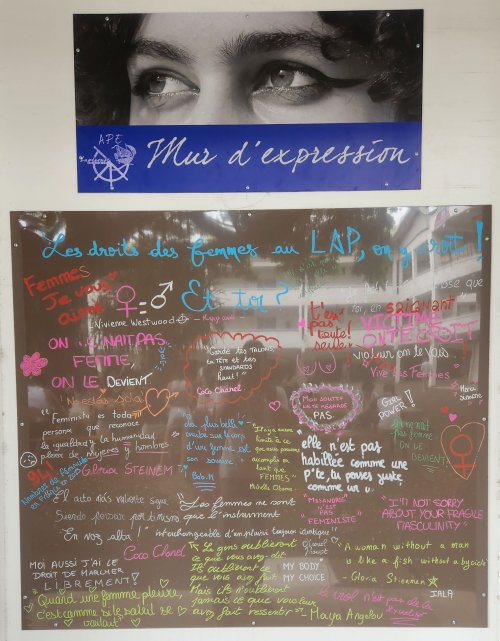 APE
Mur d'expression
Les droits des femmes au LAP, on y croit !
Et toi ?
Femmes
Je vous
aime
♀=♂
Vivienne Westwood
ON NAÎT PAS
FEMME,
ON LE DEVIENT
No estás sola
"Garde tes talons,
ta tête et tes
standards
haut!"
Coco Chanel
t'es
pas
toute
seule
en saignant
VICTIME
ON TE CROIT
violeur on te vois
"Vive les Femmes"
Mon soutif
ne te regarde
PAS.
GIRL
POWER!
on ne nait
pas femme
ON LE
DEVIENT
"Feminista es toda
persona que reconoce
la igualdad y la humanidad
plena de mujeres y hombres"
Gloria STEINEM
La plus belle
courbe sur le corps
d'une femme est
son sourire
Bob.M
"Il n'y a aucune
limite à ce
que nous pouvons
accomplir en
tant que
FEMMES"
Michelle Obama
elle n'est pas
habillée comme une
p*te, tu penses juste
comme un v.
"MISANDRE"
N'EST
PAS
FEMINISTE
"I'M NOT SORRY
ABOUT YOUR FRAGILE
MASCULINITY"
El acto más valiente sigue
Siendo pensar por ti mismo
"En voz alta!"
Coco Chanel
"Les femmes ne sont
que l'instrument
interchangeable d'un plaisir toujours identique"
MOI AUSSI J'AI LE
DROIT DE MARCHER
LIBREMENT!
"Les gens oublieront
ce que vous avez dit
Ils oublieront ce
que vous avez fait
Mais ils n'oublieront
jamais ce que vous leur
avez fait ressentir"
Maya Angelou
MY BODY
MY CHOICE
"A woman without a man
is like a fish without a bicycle"
- Gloria Steinem
JALA
"Quand une femme pleure,
c'est comme si le soleil se
voilait"
Le viol n'est pas de la